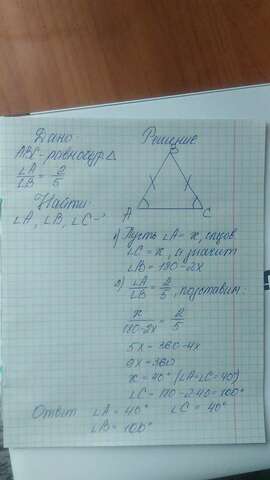 Дано
Решение
ABC - равнобедр Δ
∠A/∠B = 2/5
Найти
∠A, ∠B, ∠C -?
B
A
C
1) Пусть ∠A = x, тогда
∠C = x, а значит
∠B = 180 - 2x
2) ∠A/∠B = 2/5, подставим:
x/180-2x = 2/5
5x = 360 - 4x
9x = 360
x = 40° (∠A=∠C=40°)
∠C = 180 - 2·40 = 100°
Ответ ∠A = 40° ∠C = 40°
∠B = 100°